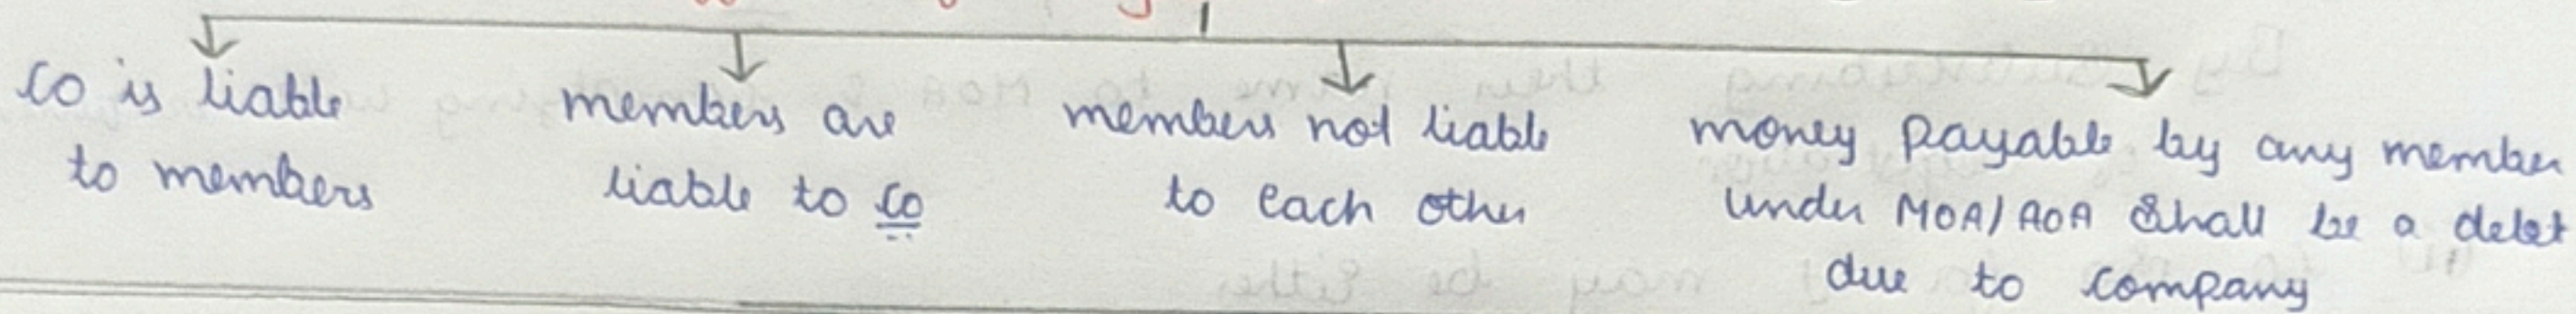 co is liable
to members
members are
liable to co
members not liable
to each other
money payable by any member
under MOA/AOA shall be a debt
due to company